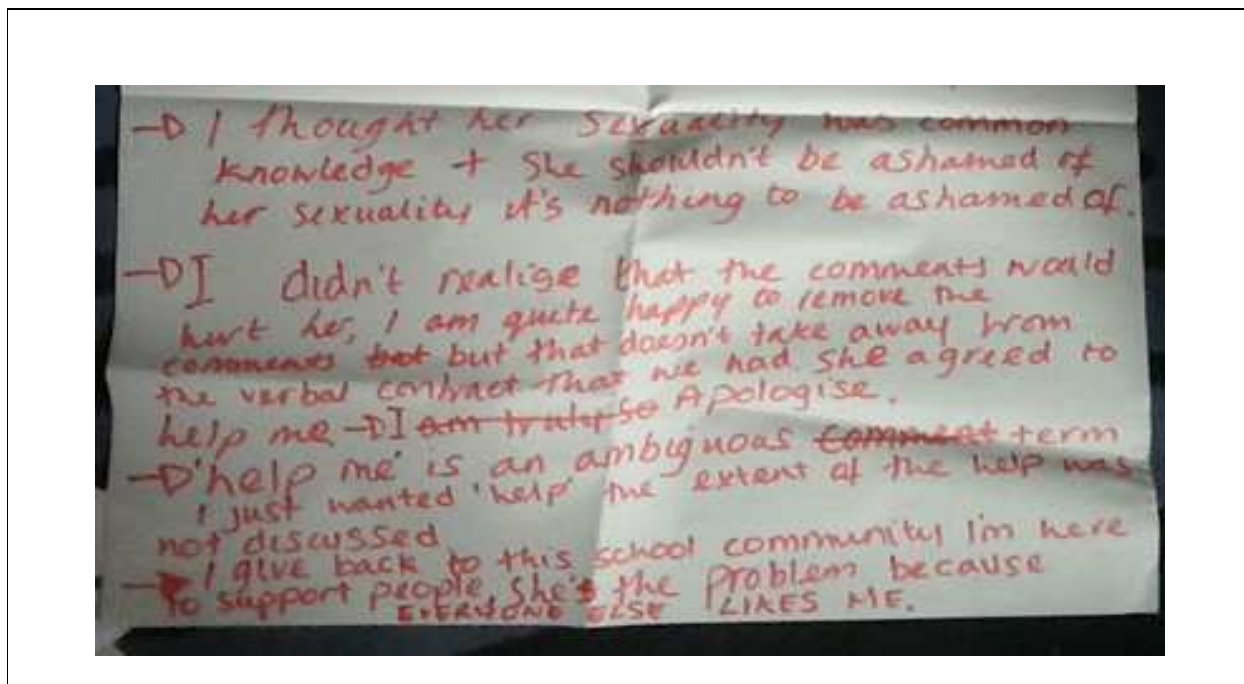 → I thought her sexuality was common
knowledge + she shouldn't be ashamed of
her sexuality it's nothing to be ashamed of.
→ I didn't realise that the comments would
hurt her, I am quite happy to remove the
comments but but that doesn't take away from
the verbal contract that we had she agreed to
help me → I am truly so Apologise.
→ 'help me' is an ambiguous comment term
I just wanted 'help' the extent of the help was
not discussed
→ I give back to this school community I'm here
to support people, she's the problem because
EVERYONE ELSE LIKES ME.